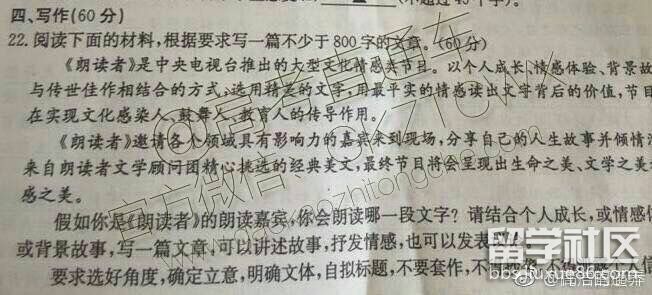 (不超过45个字)。
四、写作(60分)
22.阅读下面的材料,根据要求写一篇不少于800字的文章。(60分)
《朗读者》是中央电视台推出的大型文化情感类节目。以个人成长、情感体验、背景故
与传世佳作相结合的方式,选用精美的文字,用最平实的情感读出文字背后的价值,节目
在实现文化感染人、鼓舞人、教育人的传导作用。
《朗读者》邀请各个领域具有影响力的嘉宾来到现场,分享自己的人生故事并倾情
来自朗读者文学顾问团精心挑选的经典美文,最终节目将会呈现出生命之美、文学之美
感之美。
假如你是《朗读者》的朗读嘉宾,你会朗读哪一段文字?请结合个人成长,或情感
或背景故事,写一篇文章,可以讲述故事,抒发情感,也可以发表
要求选好角度,确定立意,明确文体,自拟标题,不要套作,不
留学社区
bbs.liuxue86.com
官方微信